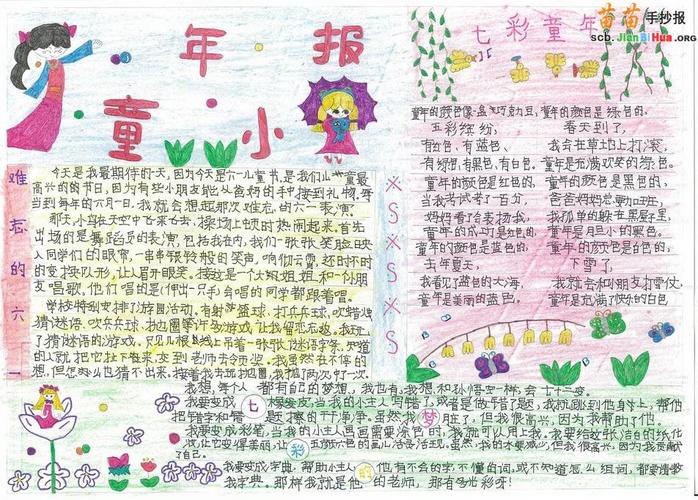 年 报
童 小
七彩童年
苗苗手抄报
scb.JianBiHua.ORG
难忘的六一
今天是我最期待的一天,因为今天是六一儿童节,是我们儿童最
高兴的的节日,因为有些小朋友能从爸妈的手中接到礼物,每
当到每年的六月一日,我就会想起那次难忘的六一表演。
那天,小鸟在天空中飞来飞去,操场上顿时热闹起来。首先
出场的是舞蹈员的表演,包括我在内,我们一张张笑脸映
入同学们的眼帘,一串串张铃般的笑声,响彻云霄,还时不时
的变换队形,让人眉开眼笑。接这是一个大姐姐和一个小朋
友唱歌,他们唱的是《伸出一只手》会唱的同学都跟着唱。
学校特别安排了游园活动,有射篮球,打乒乓球,吹蜡烛
猜谜语,吹乒乓球,抛圈等许多游戏,让我留恋忘返。我玩上
了猜谜语的游戏,只见几根线上吊着一张张谜语字条,知道
的人就把它扯下在来,交到老师去领奖。我虽然在不停的
想,但怎么也猜不出来,接着我去玩抛圈,我抛了两次,中了一次。
童年的颜色像一盒巧克力豆,
五彩缤纷,
有红色,有蓝色、
有绿色,有黑色,有白色。
童年的颜色是红色的,
当我考试考了一百分,
妈妈看了会表扬我,
童年是成功的红色。
童年的颜色是蓝色的,
去年夏天,
我看见了蓝色的大海,
童年是美丽的蓝色。
童年的颜色是绿色的。
春天到了,
我会在草地上打滚,
童年是充满欢笑的绿色。
童年的颜色是黑色的,
爸爸妈妈总要加班,
我孤单的躲在黑屋里,
童年是胆小的黑色。
童年的颜色是白色的,
下雪了,
我就会和小朋友打雪仗,
童年是充满了快乐的白色
我想,每个人都有自己的梦想,我也有,我想和孙悟空一样,会七十二变。
我要变成橡皮,当我的小主人写错了,或者是做错了题,我就跳到他身上,帮他
把错字和错题擦的干干净净。虽然我脏了,但我很高兴,因为我帮助了他。
我要变成彩笔,当我的小主人画画需要涂色时,我就可以用上我。我要给这张洁白的纸化
妆,让它变得美丽,让五颜六色的画儿活灵活现。虽然,我的水变减少,但我很高兴,因为我奉献
了自己。
我要变成字典,帮助小主人,他有不会的字不懂的词,或不知道怎么组词,都爱请教
我字典。那样我就是他的老师,那有多光彩呀!
七彩的梦